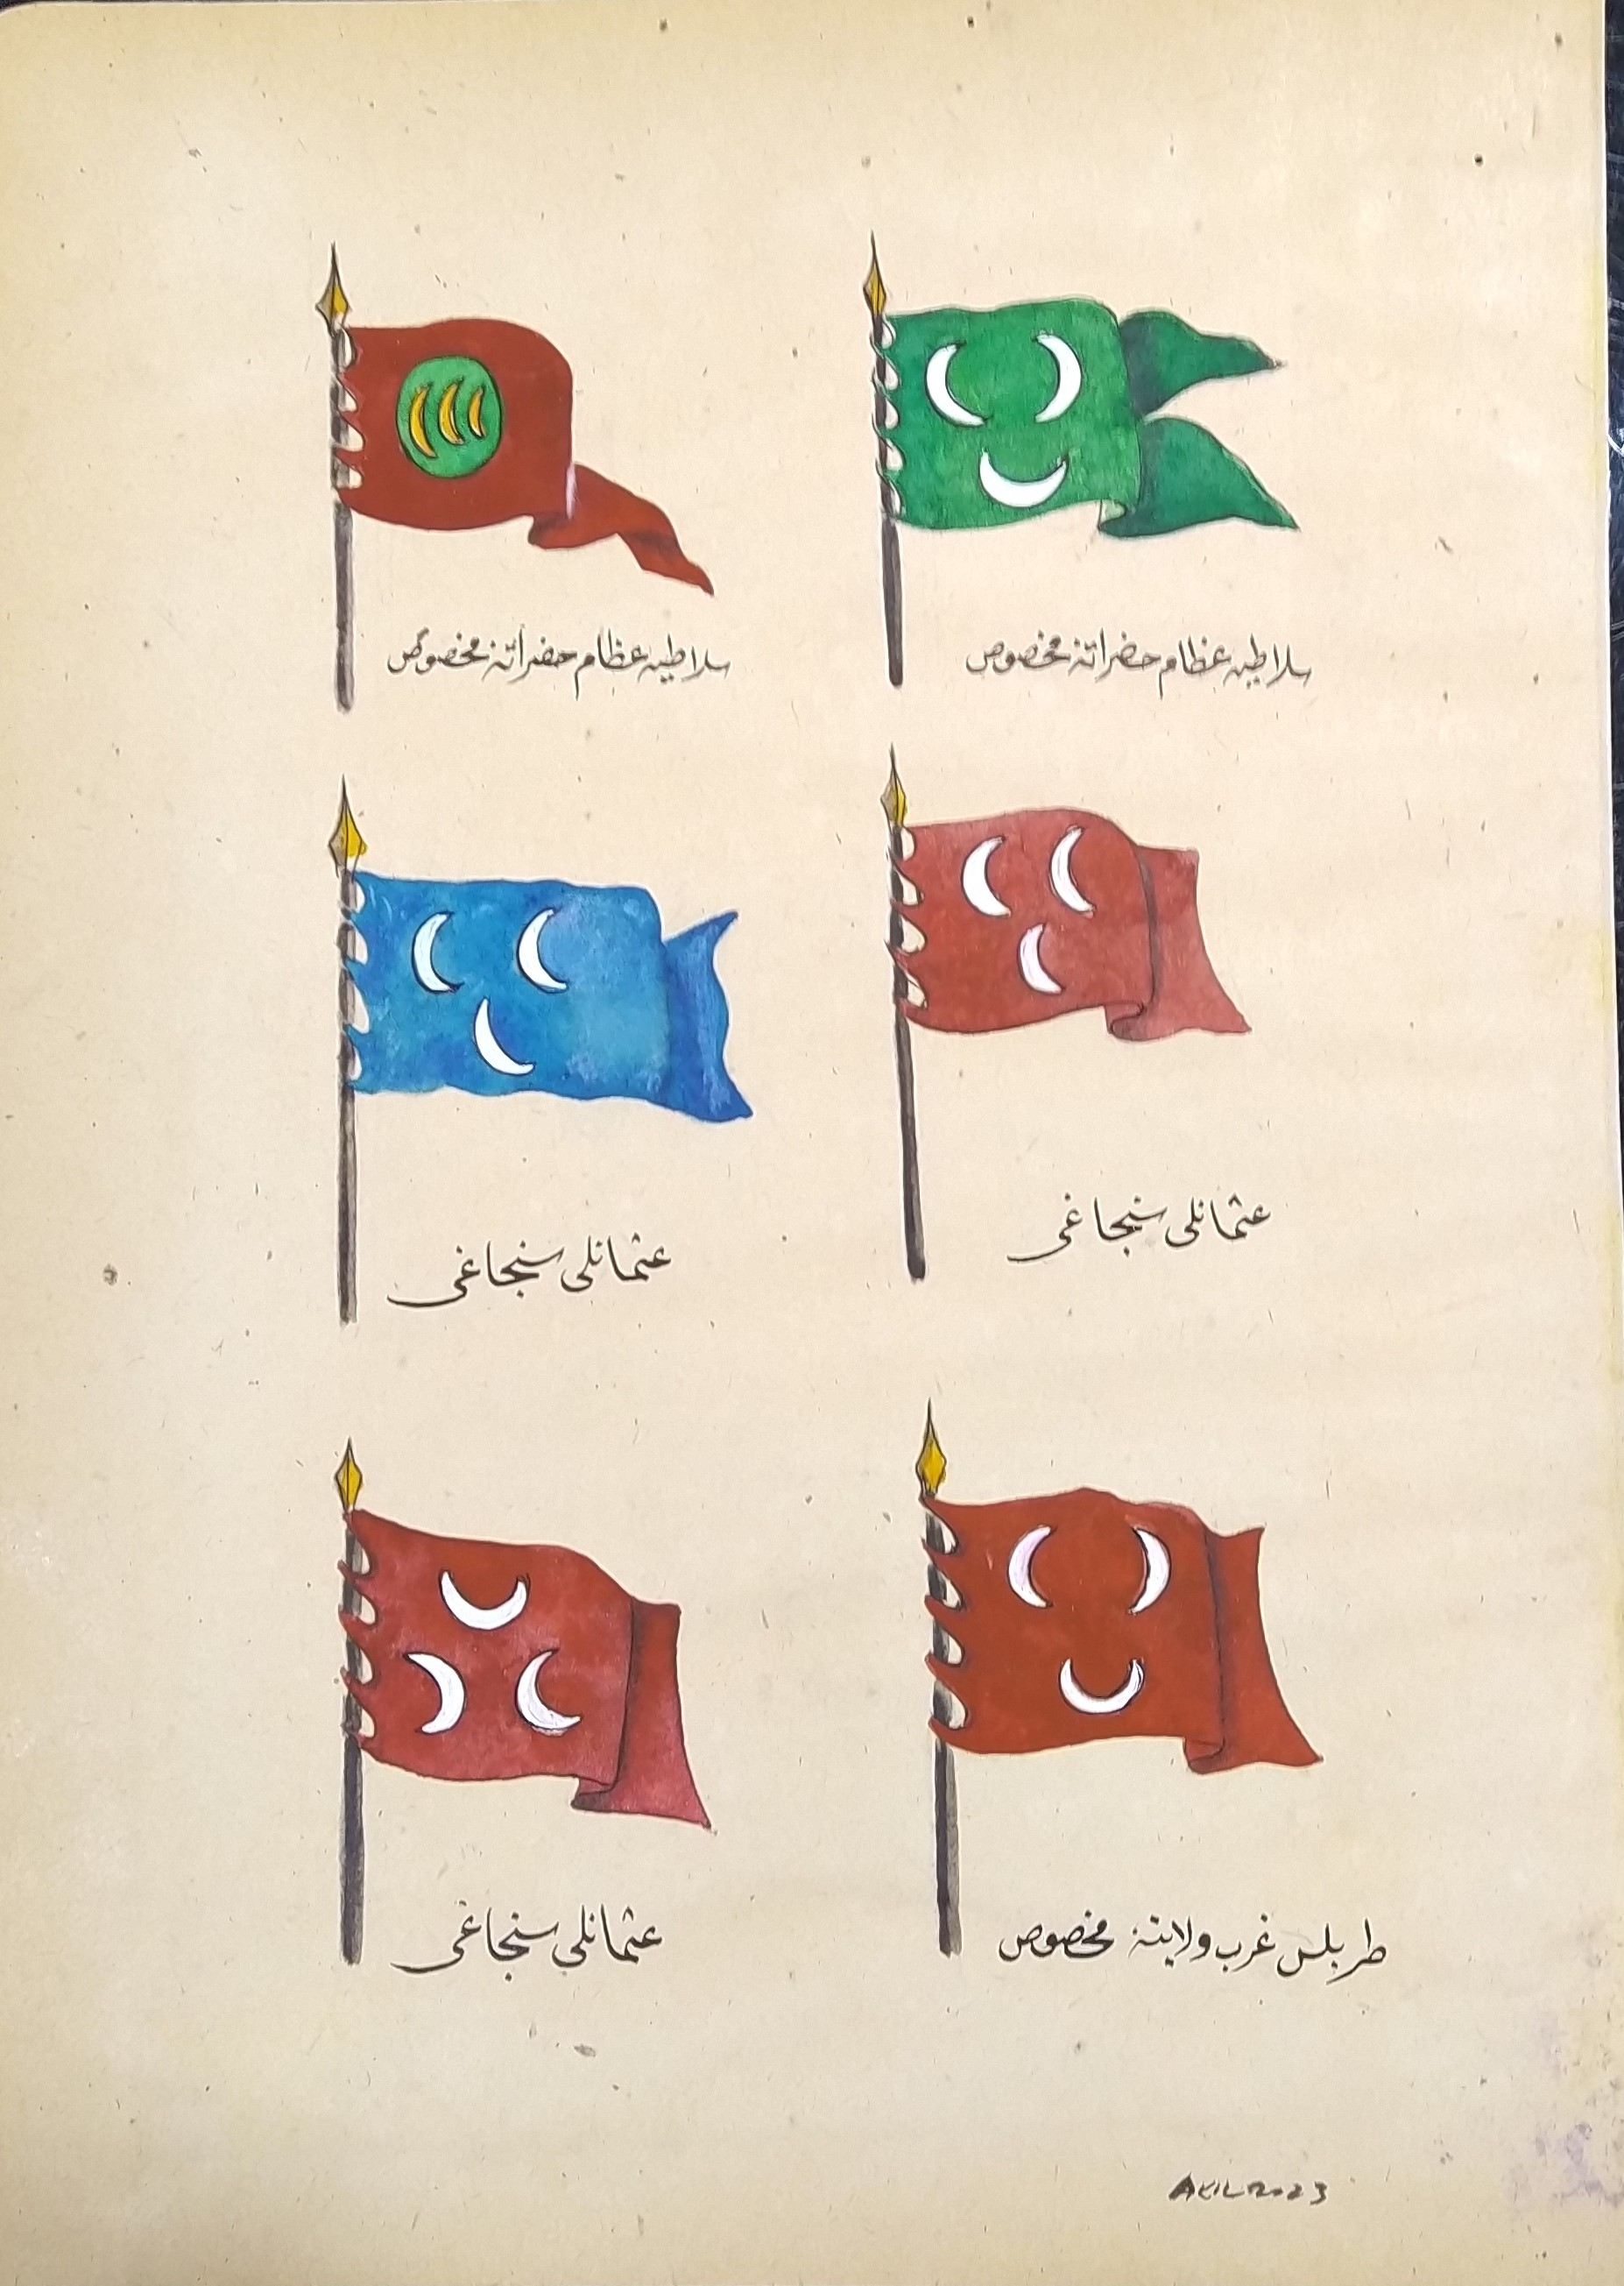 سلاطین عظام حضراتنه مخصوص
سلاطین عظام حضراتنه مخصوص
عثمانلی سنجاغی
عثمانلی سنجاغی
طرابلس غرب ولایتنه مخصوص
عثمانلی سنجاغی
AKIL 2023